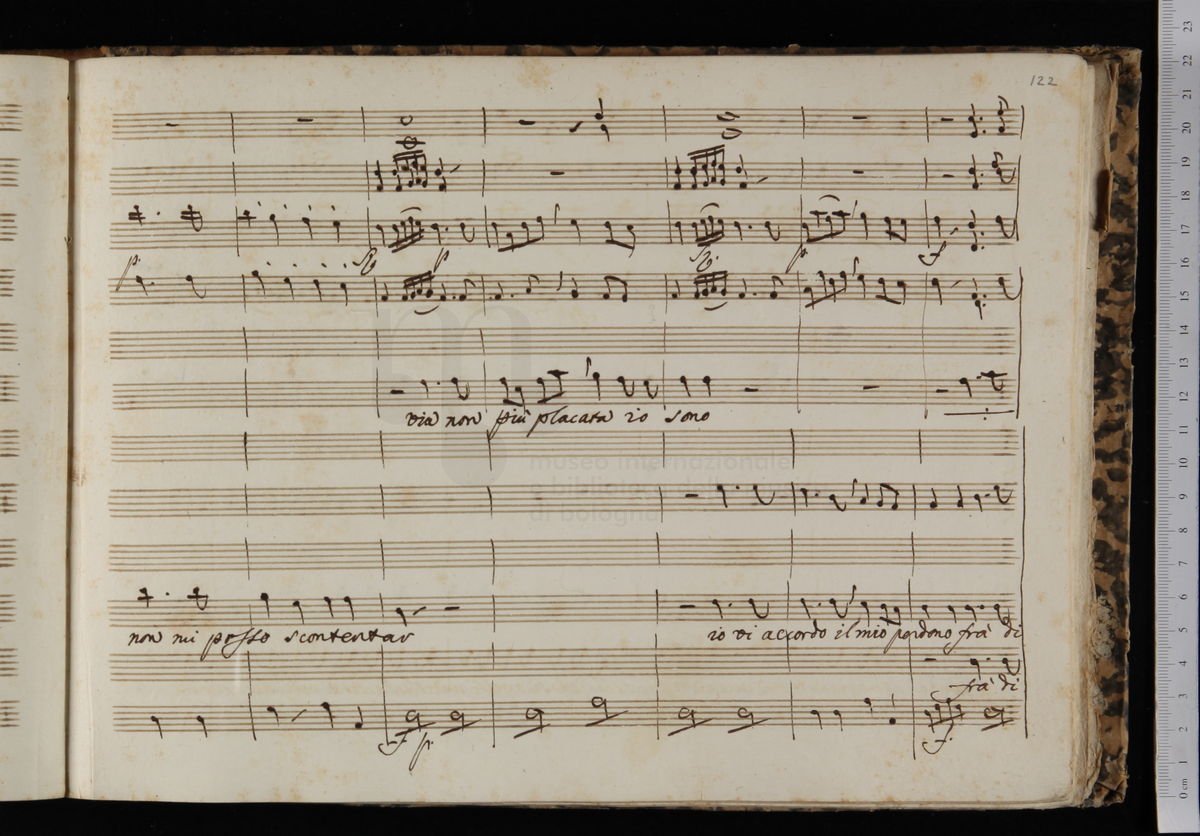 122
p.
p
p.
f
via non più placata io sono
museo internazionale
e biblioteca della musica
di bologna
non mi posso scontentar
io vi accordo il mio perdono frà di
frà di
f p.
f.
23
22
21
20
19
18
17
16
15
14
13
12
11
10
9
8
7
6
5
4
3
2
1
0 cm